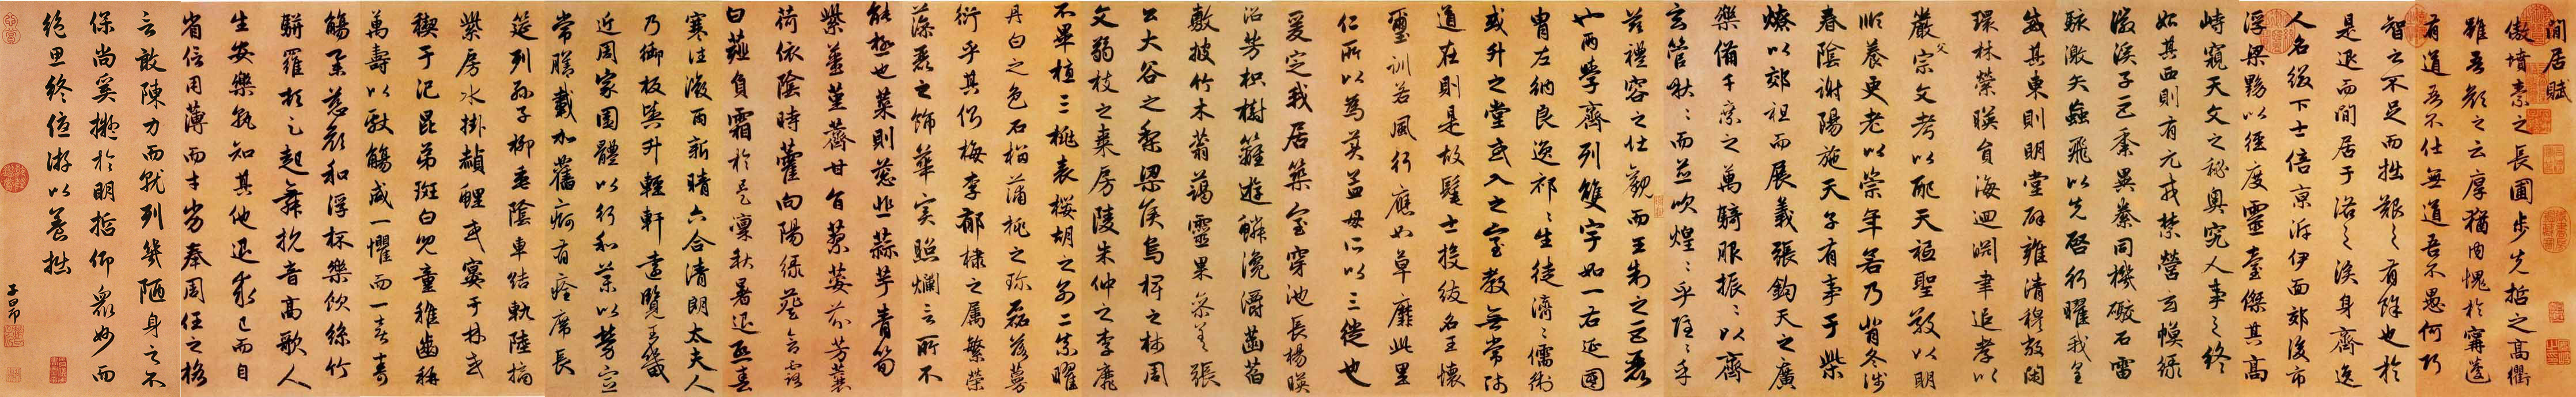 閒居賦
傲墳素之長圃步先哲之高衢
雖吾顏之云厚猶內愧於寗蘧
有道吾不仕無道吾不愚何巧
智之不足而拙艱之有餘也於
是退而閒居于洛之涘身齊逸
人名綴下士倍京泝伊面郊後市
浮梁黝以徑度靈臺傑其高
峙窺天文之秘奧究人事之終
始其西則有元戎禁營玄幙綠
徽溪子巨黍異絭同機礮石雷
駭激矢蝱飛以先啓行曜我皇
威其東則明堂辟雍清穆敞閑
環林縈暎負海迴淵聿追孝以
嚴父宗文考以配天祗聖敬以明
順養更老以崇年若乃背冬涉
春陰謝陽施天子有事于柴
燎以郊祖而展義張鈞天之廣
樂備千乘之萬騎服振振以齊
玄管啾啾而並吹煌煌乎隱隱乎
茲禮容之壯觀而王制之巨麗
也兩學齊列雙宇如一右延國
胄左納良逸祁祁生徒濟濟儒術
或升之堂或入之室教無常師
道在則是故髦士投紱名王懷
璽訓若風行應如草靡此里
仁所以為美孟母所以三徙也
爰定我居築室穿池長楊暎
沼芳枳樹籬遊鱗瀺灂菡萏
敷披竹木蓊藹靈果參差張
公大谷之梨梁侯烏椑之柿周
文弱枝之棗房陵朱仲之李靡
不畢植三桃表櫻胡之別二柰曜
丹白之色石榴蒲桃之珍磊落蔓
衍乎其側梅李郁棣之屬繁榮
藻麗之飾華實照爛言所不
能極也菜則蔥韭蒜芋青筍
紫薑堇薺甘旨蓼荾芬芳蘘
荷依陰時藿向陽綠葵含露
白薤負霜於是凜秋暑退熙春
寒往微雨新晴六合清朗太夫人
乃御板輿升輕軒遠覽王畿
近周家園體以行和藥以勞宣
常膳載加舊痾有痊席長
筵列孫子柳垂陰車結軌陸摘
紫房水掛赬鯉或宴于林或
禊于汜昆弟斑白兒童稚齒稱
萬壽以獻觴咸一懼而一喜壽
觴舉慈顏和浮杯樂飲絲竹
駢羅頓足起舞抗音高歌人
生安樂孰知其他退求己而自
省信用薄而才劣奉周任之格
言敢陳力而就列幾陋身之不
保尚奚擬於明哲仰眾妙而
絕思終優游以養拙
子昂